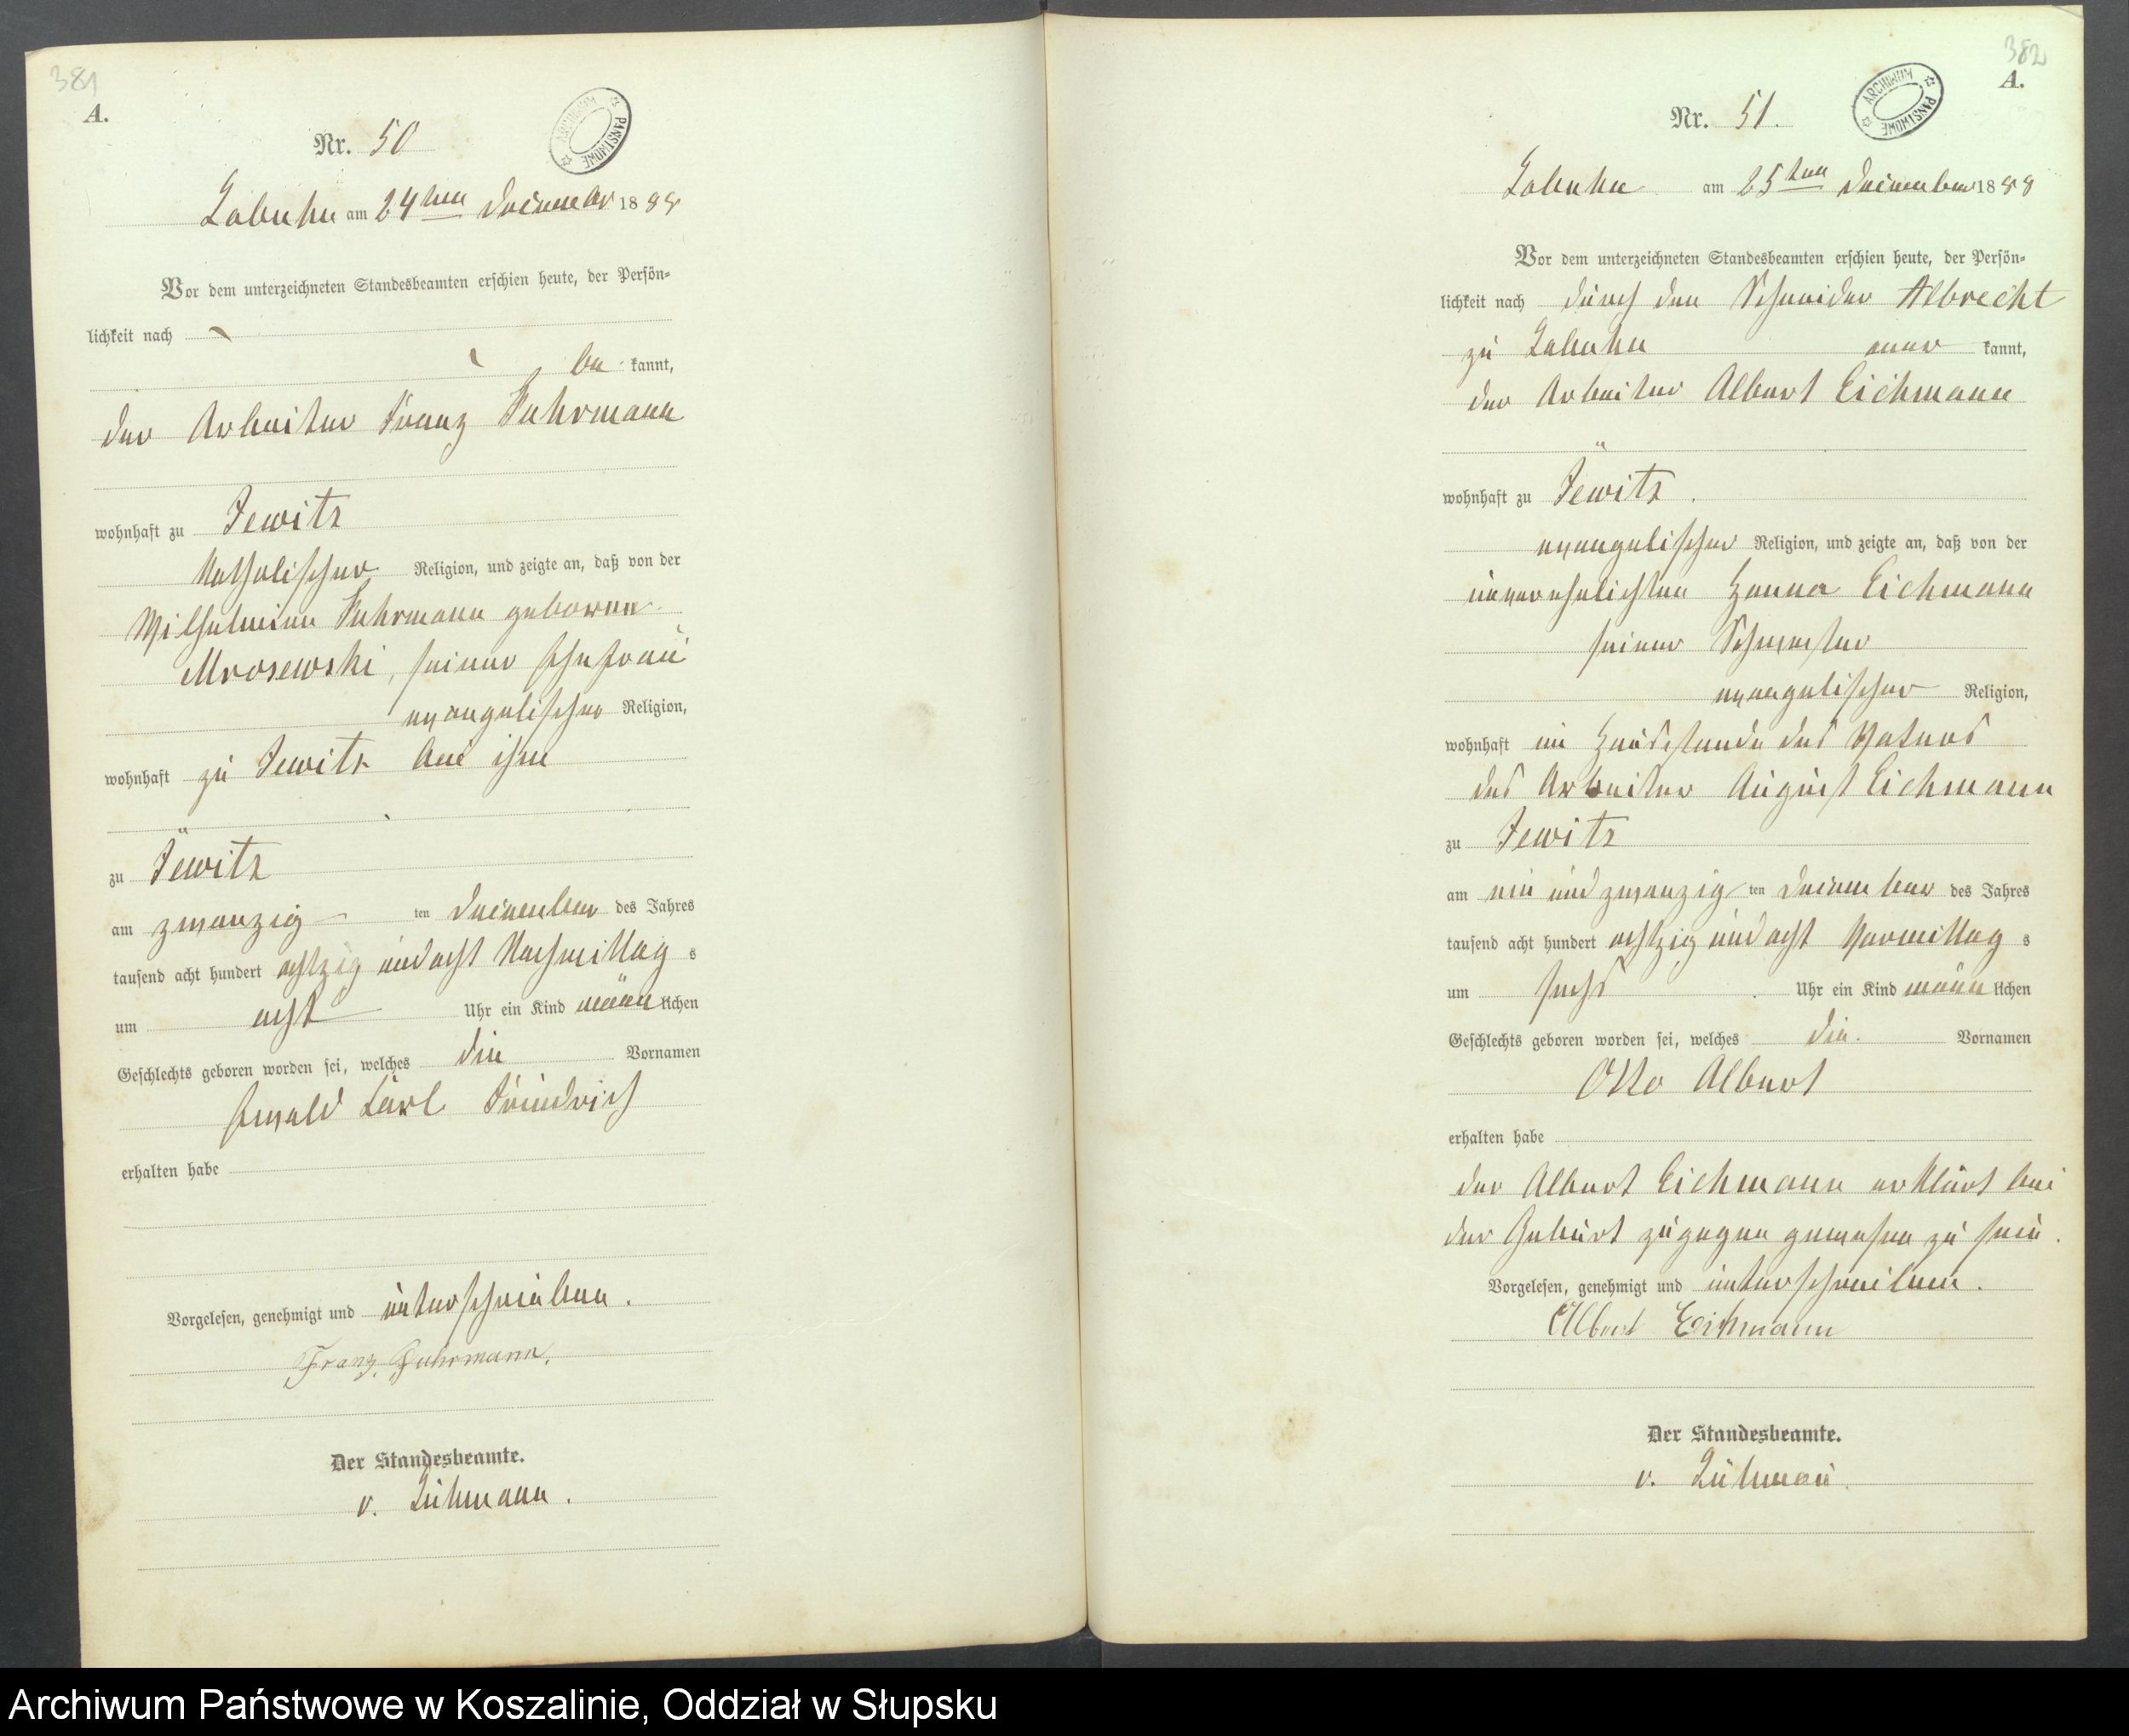 381
A.
Nr. 50
ARCHIWUM PAŃSTWOWE
Labuhn am 24ten December 1888
Vor dem unterzeichneten Standesbeamten erschien heute, der Persön-
lichkeit nach
be kannt,
der Arbeiter Franz Fuhrmann
wohnhaft zu Jewitz
katholischer Religion, und zeigte an, daß von der
Wilhelmine Fuhrmann geborene
Mrosewski, seiner Ehefrau
evangelischer Religion,
wohnhaft zu Jewitz bei ihm
zu Jewitz
am zwanzig ten December des Jahres
tausend acht hundert achtzig und acht Nachmittag s
um acht Uhr ein Kind männ lichen
Geschlechts geboren worden sei, welches die Vornamen
Ewald Carl Friedrich
erhalten habe
Vorgelesen, genehmigt und unterschrieben.
Franz Fuhrmann.
Der Standesbeamte.
v. Lühmann.
382
A.
Nr. 51.
ARCHIWUM PAŃSTWOWE
Labuhn am 25ten December 1888
Vor dem unterzeichneten Standesbeamten erschien heute, der Persön-
lichkeit nach durch den Schneider Albrecht
zu Labuhn aner kannt,
der Arbeiter Albert Eichmann
wohnhaft zu Jewitz.
evangelischer Religion, und zeigte an, daß von der
unverehelichten Hanna Eichmann
seiner Schwester
evangelischer Religion,
wohnhaft im Hausstande des Vaters
des Arbeiter August Eichmann
zu Jewitz
am ein und zwanzig ten December des Jahres
tausend acht hundert achtzig und acht Vormittag s
um sechs Uhr ein Kind männ lichen
Geschlechts geboren worden sei, welches die Vornamen
Otto Albert
erhalten habe
der Albert Eichmann erklärt bei
der Geburt zugegen gewesen zu sein.
Vorgelesen, genehmigt und unterschrieben.
Albert Eichmann
Der Standesbeamte.
v. Lühmann
Archiwum Państwowe w Koszalinie, Oddział w Słupsku